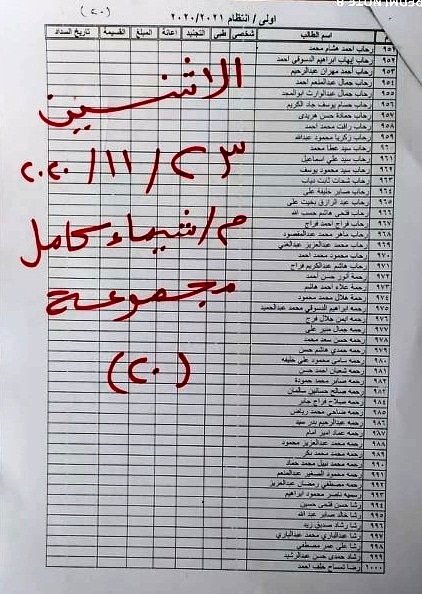 (٢٠)
اولى / انتظام ٢٠٢٠/٢٠٢١
اسم الطالب شخصى طبى التجنيد اعانة المبلغ القسيمة تاريخ السداد
٩٥١ رحاب احمد هشام محمد
٩٥٢ رحاب إيهاب ابراهيم الدسوقي احمد
٩٥٣ رحاب أحمد مهران عبدالرحيم
٩٥٤ رحاب جمال عبدالمنعم احمد
٩٥٥ رحاب جمال عبدالوارث ابوالمجد
٩٥٦ رحاب حسام يوسف جاد الكريم
٩٥٧ رحاب حمادة حسن هريدى
٩٥٨ رحاب رافت محمد احمد
٩٥٩ رحاب زكريا محمود عبدالله
٩٦٠ رحاب سيد عطا محمد
٩٦١ رحاب سيد على اسماعيل
٩٦٢ رحاب سيد محمود يوسف
٩٦٣ رحاب شحات ثابت دياب
٩٦٤ رحاب صابر خليفة على
٩٦٥ رحاب عبد الرازق بخيت على
٩٦٦ رحاب فتحى هاشم حسب الله
٩٦٧ رحاب فراج احمد فراج
٩٦٨ رحاب ماهر محمد عبدالمقصود
٩٦٩ رحاب محمد عبدالعزيز عبدالغني
٩٧٠ رحاب محمود محمد احمد
٩٧١ رحاب هاشم عبدالكريم فراج
٩٧٢ رحمة أنور حسن احمد
٩٧٣ رحمة علاء احمد هاشم
٩٧٤ رحمة هلال محمد محمود
٩٧٥ رحمه ابراهيم الدسوقي محمد عبدالحميد
٩٧٦ رحمه ايمن جلال فرج
٩٧٧ رحمه جمال منير على
٩٧٨ رحمه حسن سعد محمد
٩٧٩ رحمه حمدي هاشم حسن
٩٨٠ رحمه سامى محمود على خليفه
٩٨١ رحمه شعبان احمد حسن
٩٨٢ رحمه صابر محمد حمودة
٩٨٣ رحمه صالح حسانين
٩٨٤ رحمه صلاح فراج جابر
٩٨٥ رحمه ضاحى محمد رياض
٩٨٦ رحمه عبدالرحيم بدر سيد
٩٨٧ رحمه عماد امير امام
٩٨٨ رحمه محمد عبدالعزيز محمود
٩٨٩ رحمه محمد محمد بكر
٩٩٠ رحمه محمد نبيل محمد حماد
٩٩١ رحمه محمود الصغير عبدالمنعم
٩٩٢ رحمه مصطفي رمضان عبدالعزيز
٩٩٣ رسميه ناصر محمود ابراهيم
٩٩٤ رشا حسن فتحى حسين
٩٩٥ رشا خالد صابر عبد الله
٩٩٦ رشا رشاد صديق زيد
٩٩٧ رشا عبدالباري محمد عبدالباري
٩٩٨ رشا على عمر مصطفى
٩٩٩ رشاد حمدى حسن عبدالرشيد
١٠٠٠ رضا تمساح خلف احمد
الاثنين
٢٣ / ١١ / ٢٠٢٠
م / شيماء كامل
مجموعة
(٢٠)